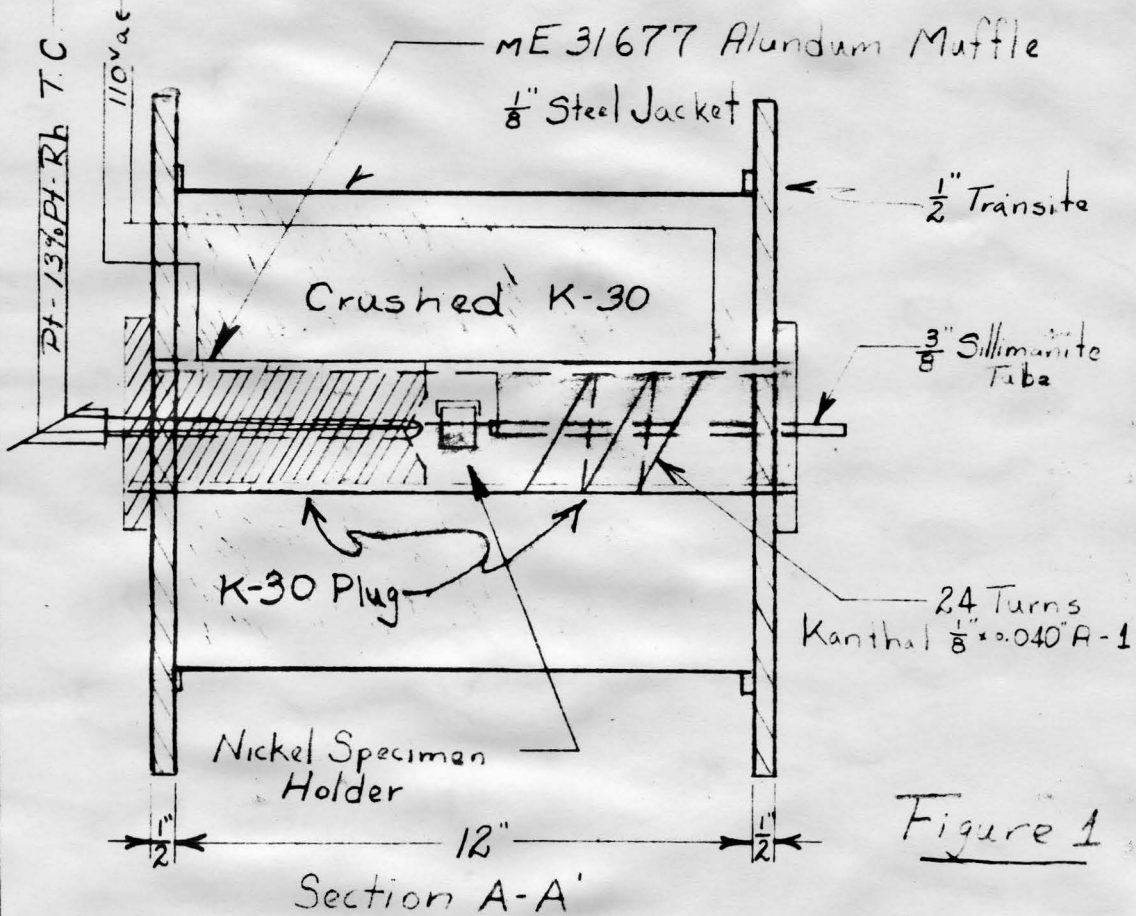 Pt-13%Pt-Rh T.C
110 v ac
ME 31677 Alundum Muffle
1/8" Steel Jacket
1/2" Transite
Crushed K-30
3/8" Sillimanite
Tube
K-30 Plug
24 Turns
Kanthal 1/8" x 0.040" A-1
Nickel Specimen
Holder
1/2"
12"
1/2"
Figure 1
Section A-A'